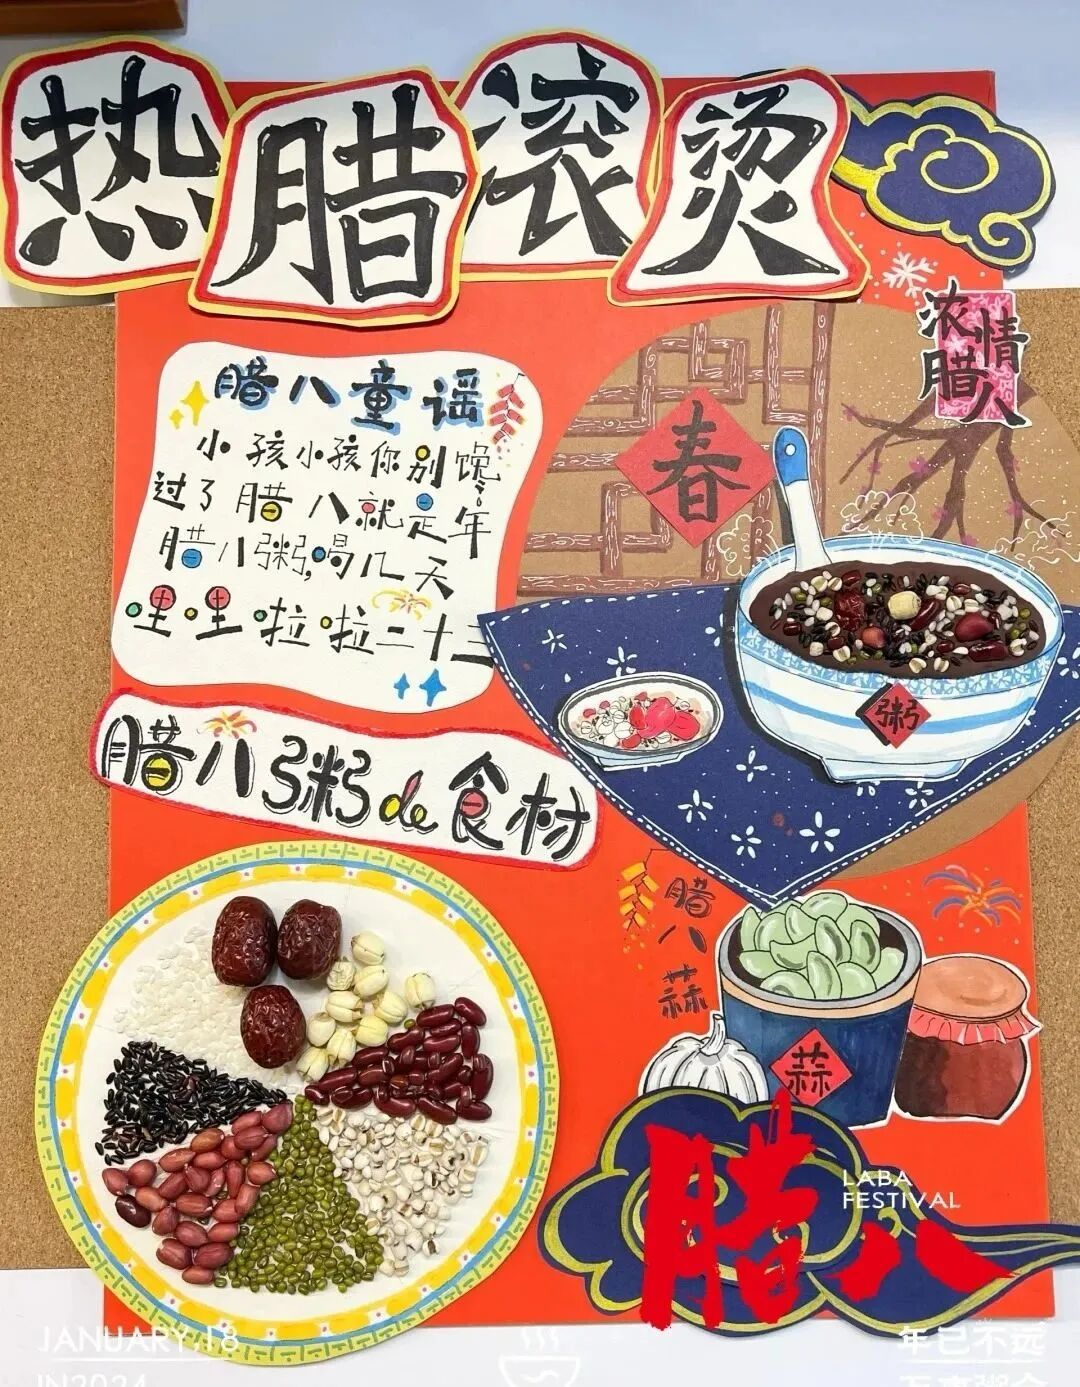 热腊滚烫
浓情
腊八
腊八童谣
小孩小孩你别馋
过了腊八就是年
腊八粥,喝几天
哩哩啦啦二十三
春
粥
腊八粥de食材
腊八蒜
蒜
腊八
LABA
FESTIVAL
JANUARY,18
IN2024
年已不远